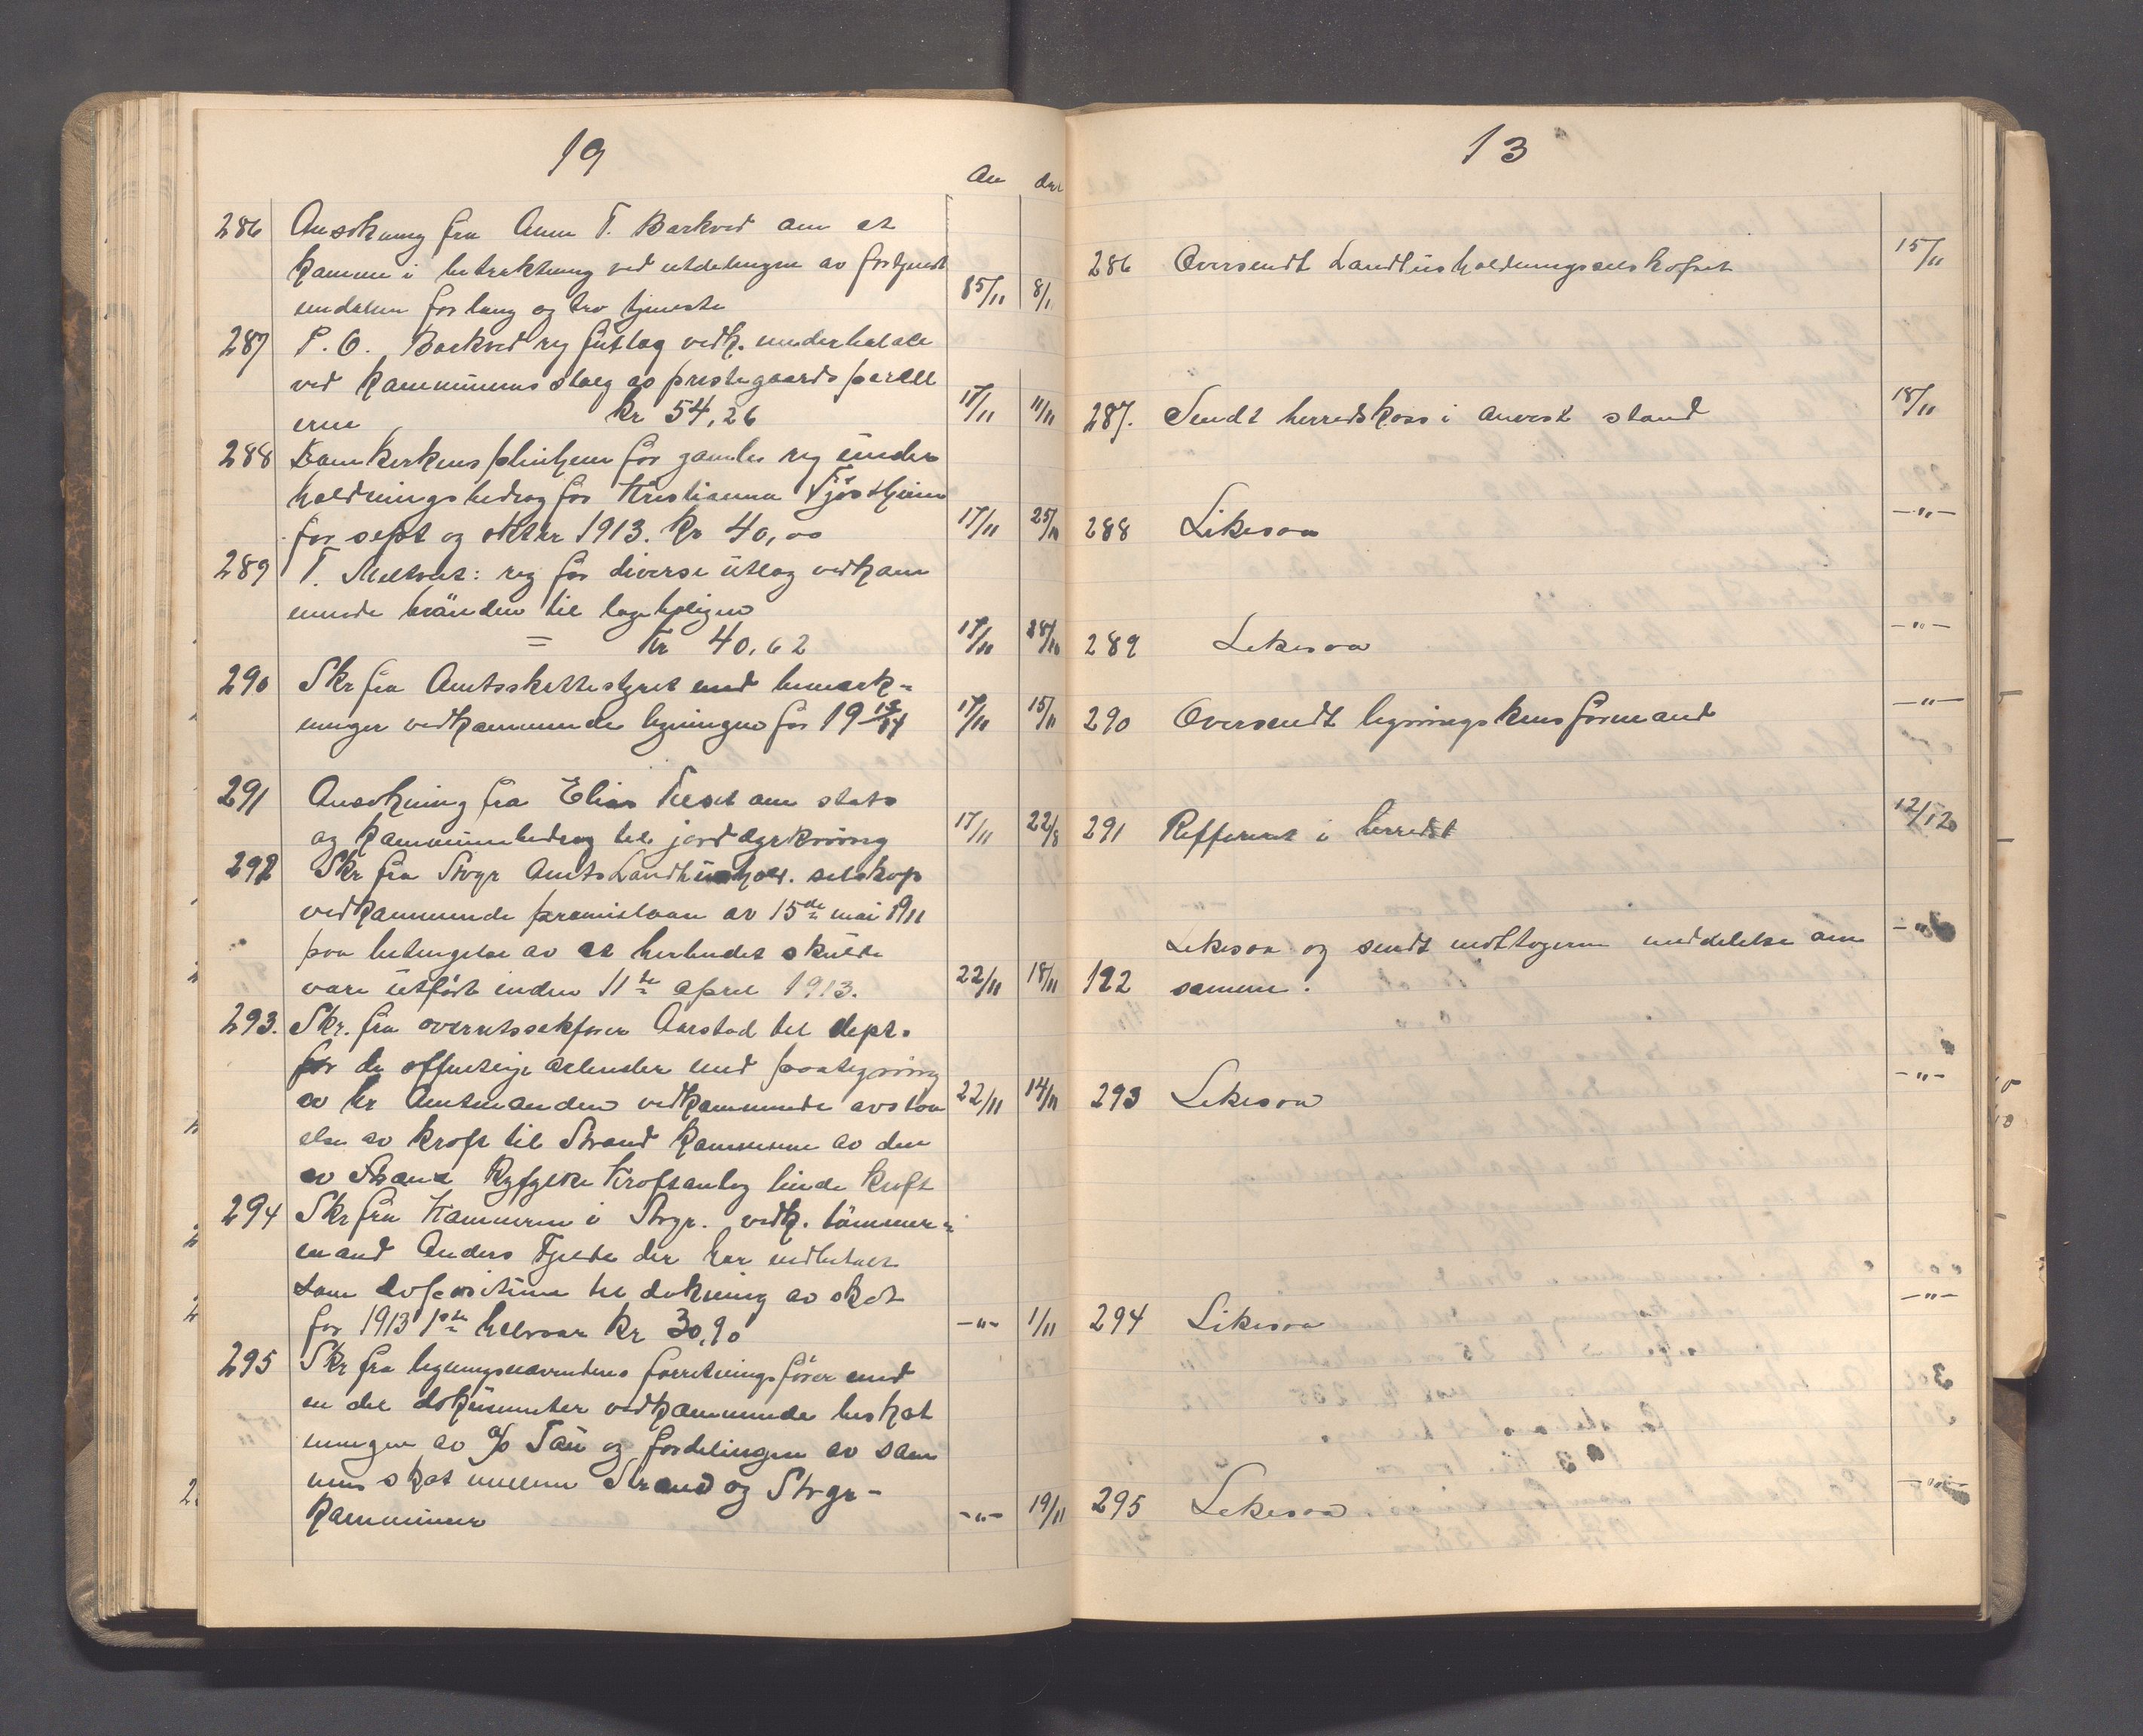 19
An dur
286 Ansökning fra Anna T. Barkved om at
komme i betraktning ved utdelingen av fortjenst
medalien for lang og tro tjeneste 15/11 8/11
287 P. O. Barkved reg futlag vedk. underhatale
ved kommunens slaeg av prestegaards parcell
erne kr 54,26 17/11 11/11
288 Domkirkens pleiehjem for gamle reg under
holdningsbedrag for Kristianna Tjöstheim
for sept og oktbr 1913. Kr 40,00 17/11 25/10
289 T. Meltveit: reg for diverse utlæg vedkom
mende bränden til lægeboligen
= Kr 40,62 17/11 28/10
290 Skr fra Amtsskattestyret med bemærk=
ninger vedkommende ligningen for 19 13/14 17/11 15/11
291 Ansökning fra Elias Tveit om stats
og kommunebedrag til jorddyrkning 17/11 22/8
292 Skr fra Stvgr Amts Landhushold. selskap
vedkommende præmielaan av 15de mai 1911
paa betingelse av at herbudet skulde
være utfört inden 11te april 1913. 22/11 18/11
293. Skr. fra overretssakförer Aarstad til dept.
for de offentlige arbeider med paategning
av hr Amtmanden vedkommende avstaa 22/11 14/11
else av kraft til Strand kommune av den
av Strand Ryfylke Kraftanlæg bunde kraft
294 Skr fra Kæmneren i Stvgr. vedk. tömmer=
mand Anders Fjelde der har indbetalt
som depositum til dekning av skat
for 1913 1ste halvaar kr 30,90 -"- 1/11
295 Skr fra ligningsnævndens forretningsförer med
en del dokumenter vedkommende beskat
ningen av A/S Tau og fordelingen av sam
mes skat mellem Strand og Stvgr-
kommuner -"- 19/11
13
286 Oversendt Landhusholdningsselskapet 15/11
287. Sendt herredskass i anvist stand 18/11
288 Likesaa -"-
289 Likesaa -"-
290 Oversendt ligningskomsformand -"-
291 Refferert i herredst 12/12
Likesaa og sendt mottagerne meddelelse om -"-
192 samme.
293 Likesaa -"-
294 Likesaa -"-
295 Likesaa. -"-